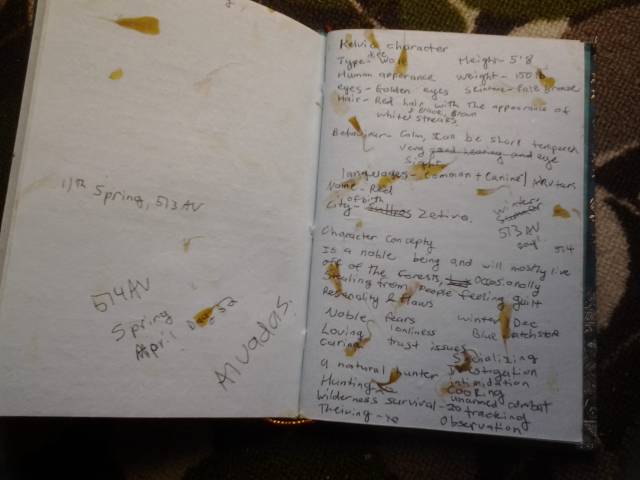 11th Spring, 513 AV
514 AV
Spring
April
Alvadas.
Kelvic character
Type- wolf Height- 5'8
Human apperance weight- 150 lb
eyes- Golden eyes skintone- Pale Bronze
Hair- Red hair with The appearance of
& Black, Brown
white streaks.
Behaviour- Calm, Can be short tempered
very good hearing and eye
sight
languages- Common + Canine /
Name- Red
of birth
City- Zeltiva. winter
513 AV
514
Character Concepty
Is a noble being and will mostly live
off of the Forests, Occasionally
Stealing from people feeling guilt
Personality & flaws
Noble- fears winter Dec
Loving lonliness Blue
Caring trust issues Socializing
A natural hunter Investigation
Hunting intimidation
Cooking
unarmed combat
Wilderness survival-20 tracking
Theiving- Observation